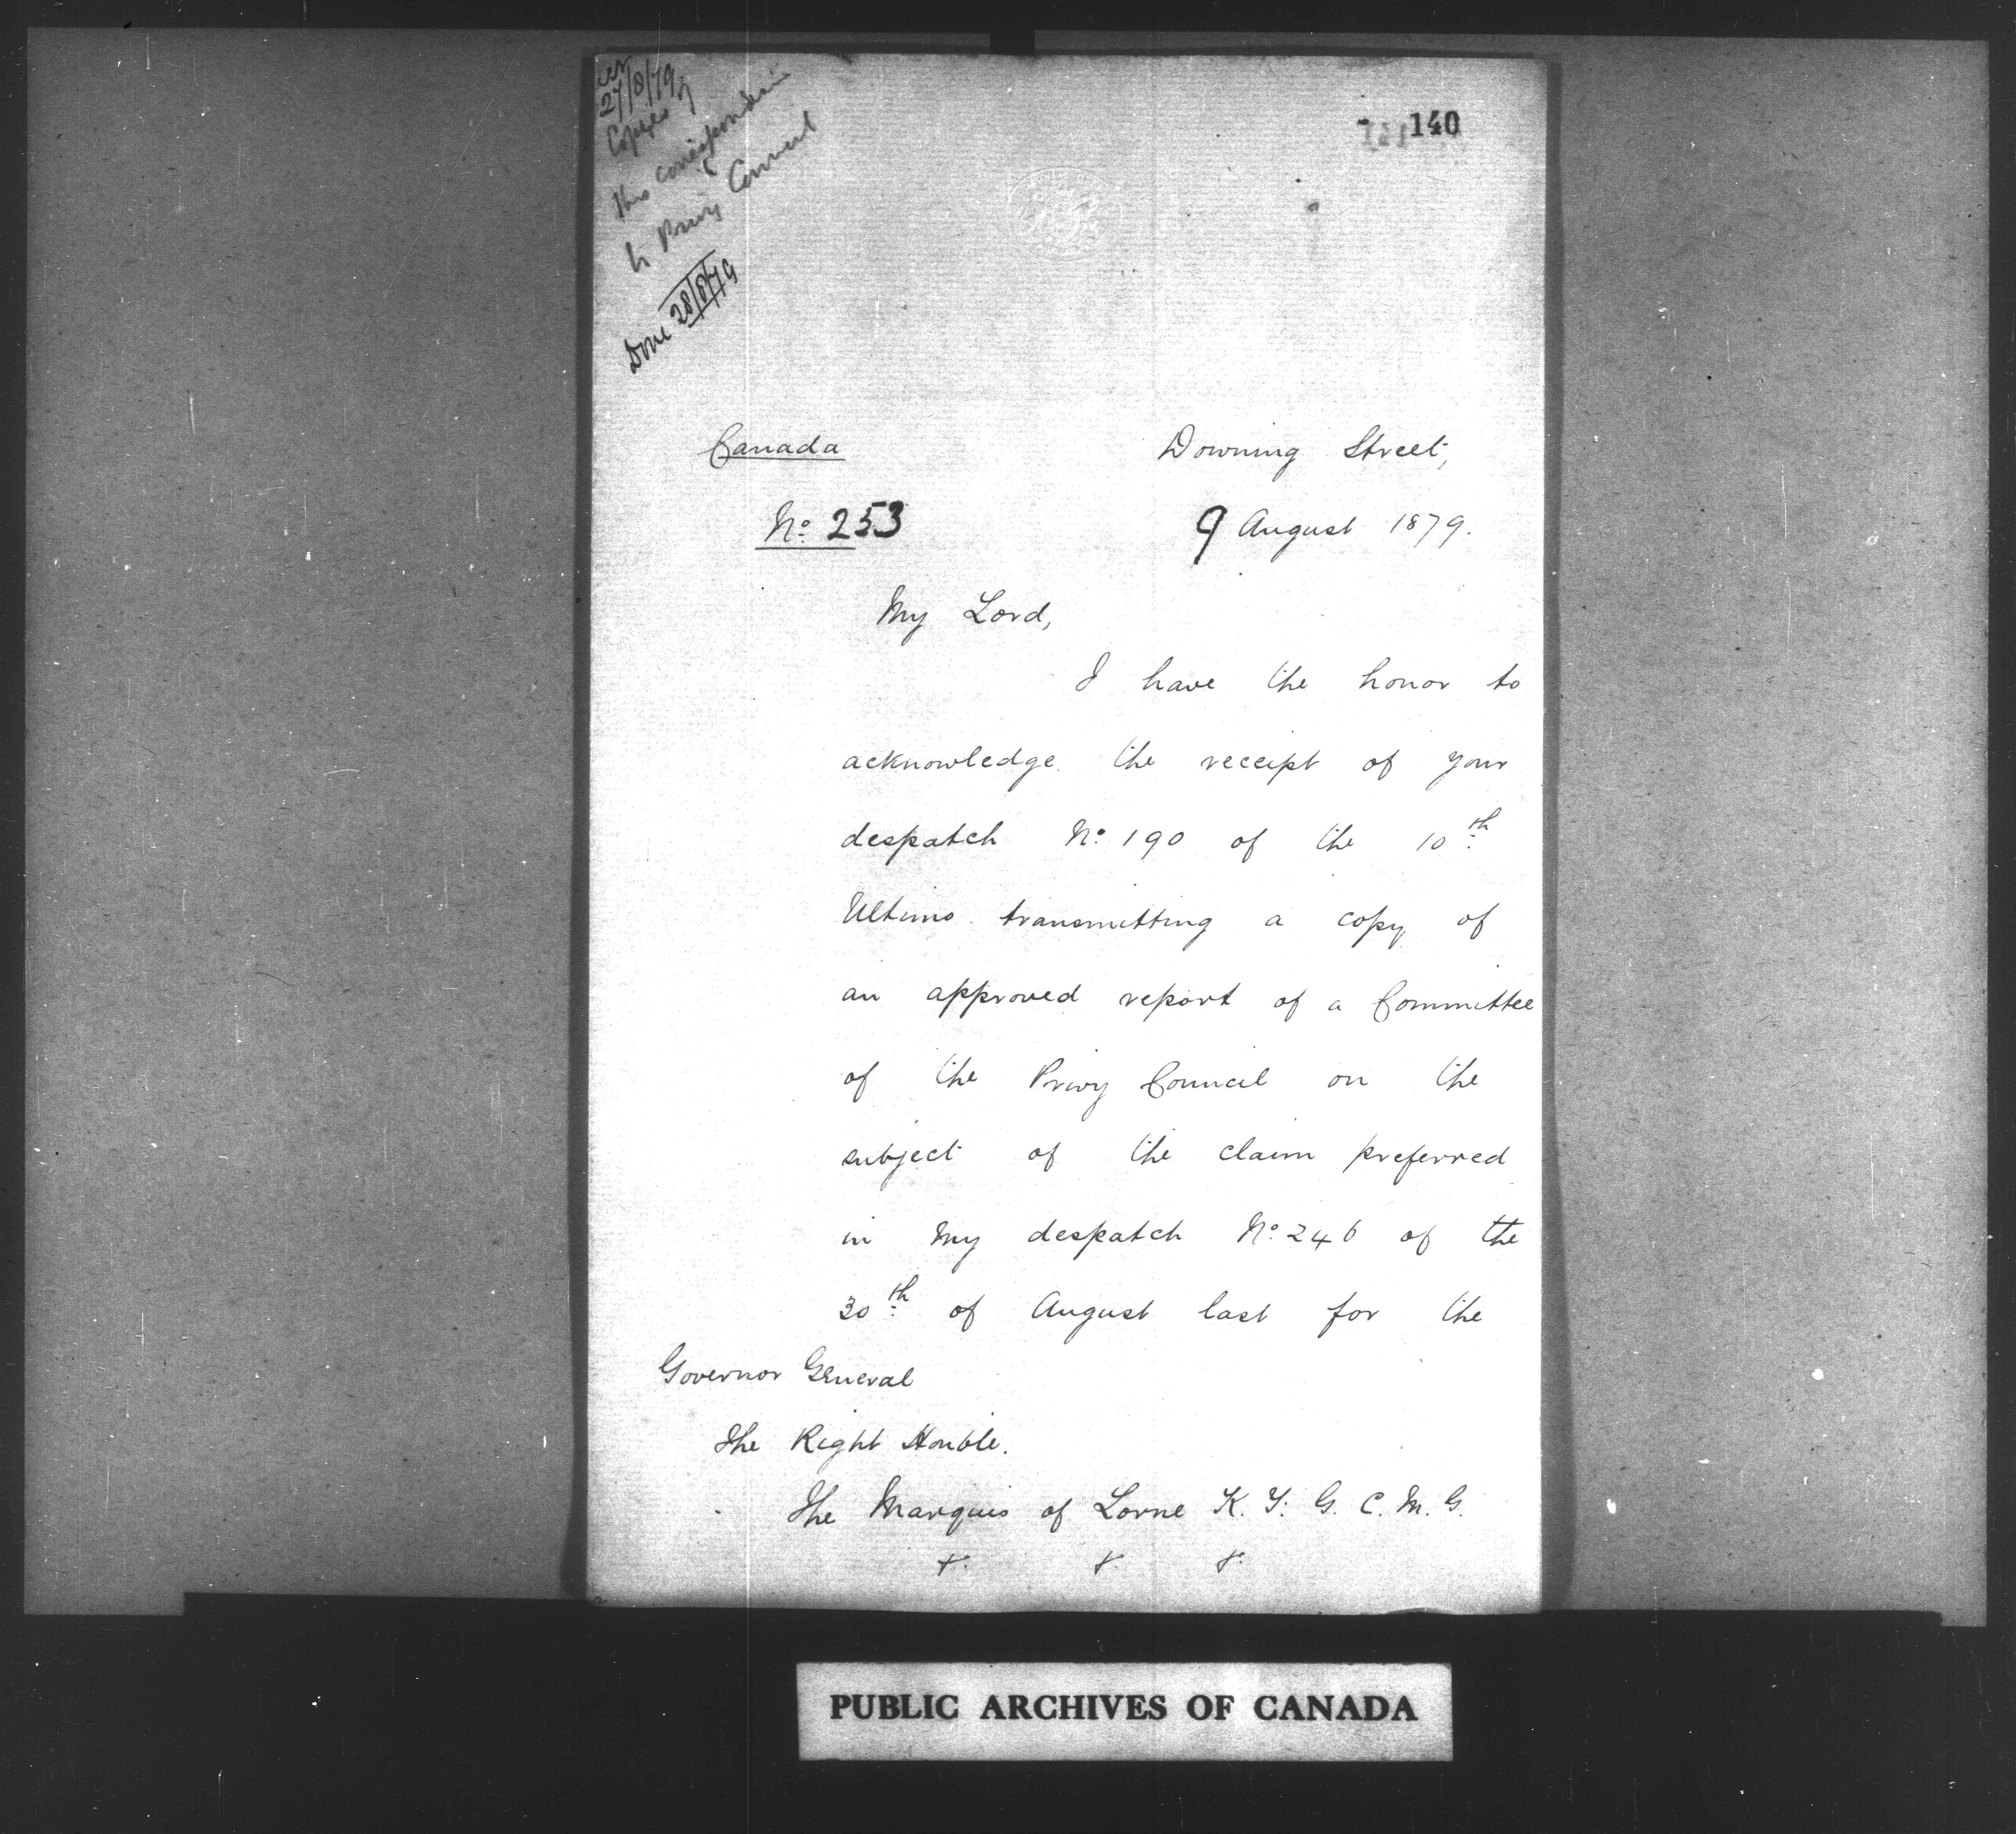 27/8/79
Copies of
this correspondence
to Privy Council
Done 28/8/79
140
Canada
Downing Street,
No. 253
9 August 1879.
My Lord,
I have the honor to
acknowledge the receipt of your
despatch No. 190 of the 10th
Ultimo transmitting a copy of
an approved report of a Committee
of the Privy Council on the
subject of the claim preferred
in my despatch No. 246 of the
30th of August last for the
Governor General
The Right Honble.
The Marquis of Lorne K. T. G. C. M. G.
PUBLIC ARCHIVES OF CANADA